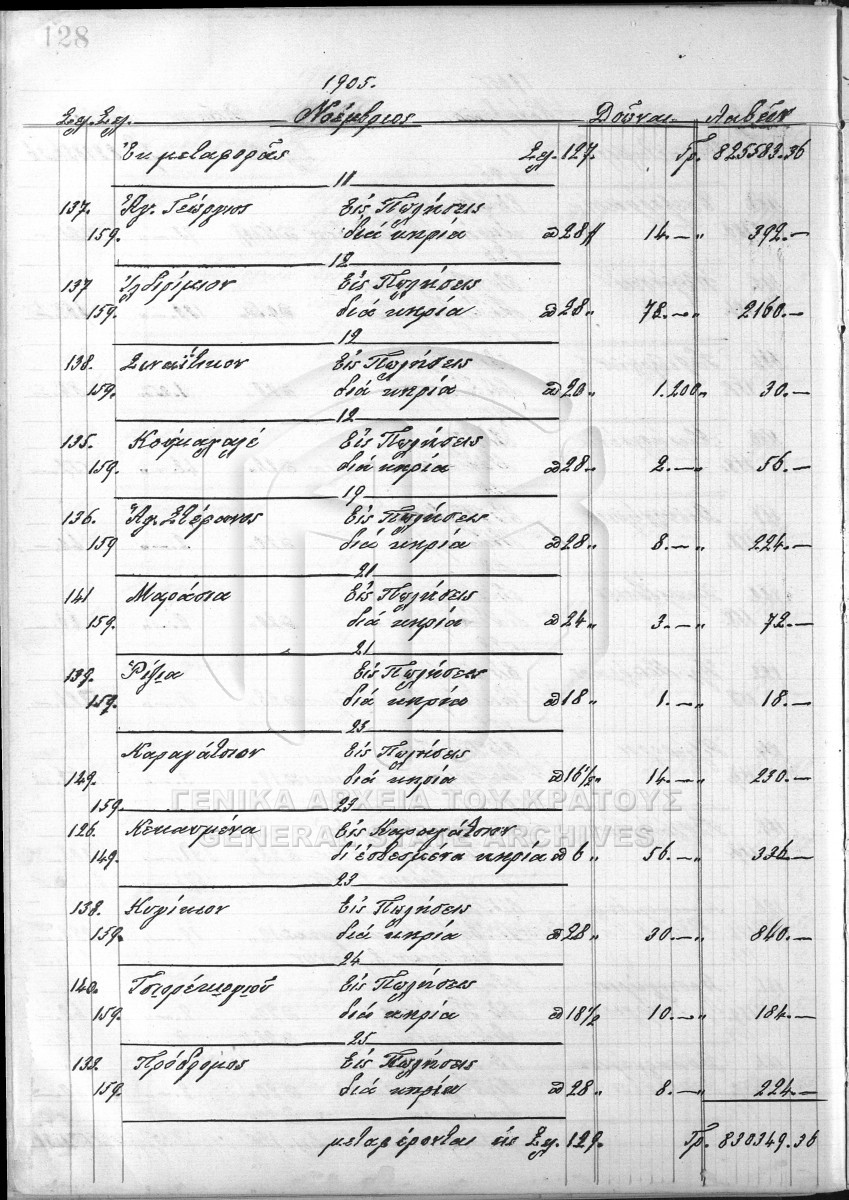 128
1905.
Σελ. Σελ. Νοέμβριος Δοῦναι Λαβεῖν
Ἐκ μεταφορᾶς Σελ. 127. Γρ. 825583.36
11
137. Ἅγ. Γεώργιος Εἰς Πωλήσεις
159. διά κηρία ἀ 28 〃 14.— 〃 392.—
12
137 Ἰλδιρίμιον Εἰς Πωλήσεις
159. διά κηρία ἀ 28 〃 78.— 〃 2160.—
12
138. Σιναϊτικον Εἰς Πωλήσεις
159. διά κηρία ἀ 20 〃 1.200 〃 30.—
12
135. Εἰς Πωλήσεις
159. διά κηρία ἀ 28 〃 2.— 〃 56.—
19
136. Ἅγ. Στέφανος Εἰς Πωλήσεις
159 διά κηρία ἀ 28 〃 8.— 〃 224.—
21
141 Μαράσια Εἰς Πωλήσεις
159. διά κηρία ἀ 24 〃 3.— 〃 72.—
21
139. Ῥίζια Εἰς Πωλήσεις
159. διά κηρία ἀ 18 〃 1.— 〃 18.—
23
Καραγάτσιον Εἰς Πωλήσεις
149. διά κηρία ἀ 16 1/2 〃 14.— 〃 230.—
159. 23
ΓΕΝΙΚΑ ΑΡΧΕΙΑ ΤΟΥ ΚΡΑΤΟΥΣ
GENERAL STATE ARCHIVES
126. Κεκαυμένα Εἰς Καραγάτσιον
149. κηρία ἀ 6 〃 56.— 〃 336.—
23
138. Εἰς Πωλήσεις
159. διά κηρία ἀ 28 〃 30.— 〃 840.—
24
140. Εἰς Πωλήσεις
159. διά κηρία ἀ 18 1/2 10.— 〃 184.—
25
133. Πρόδρομος Εἰς Πωλήσεις
159. διά κηρία ἀ 28 〃 8.— 〃 224.—
μεταφέρονται εἰς Σελ. 129. Γρ. 830349.36